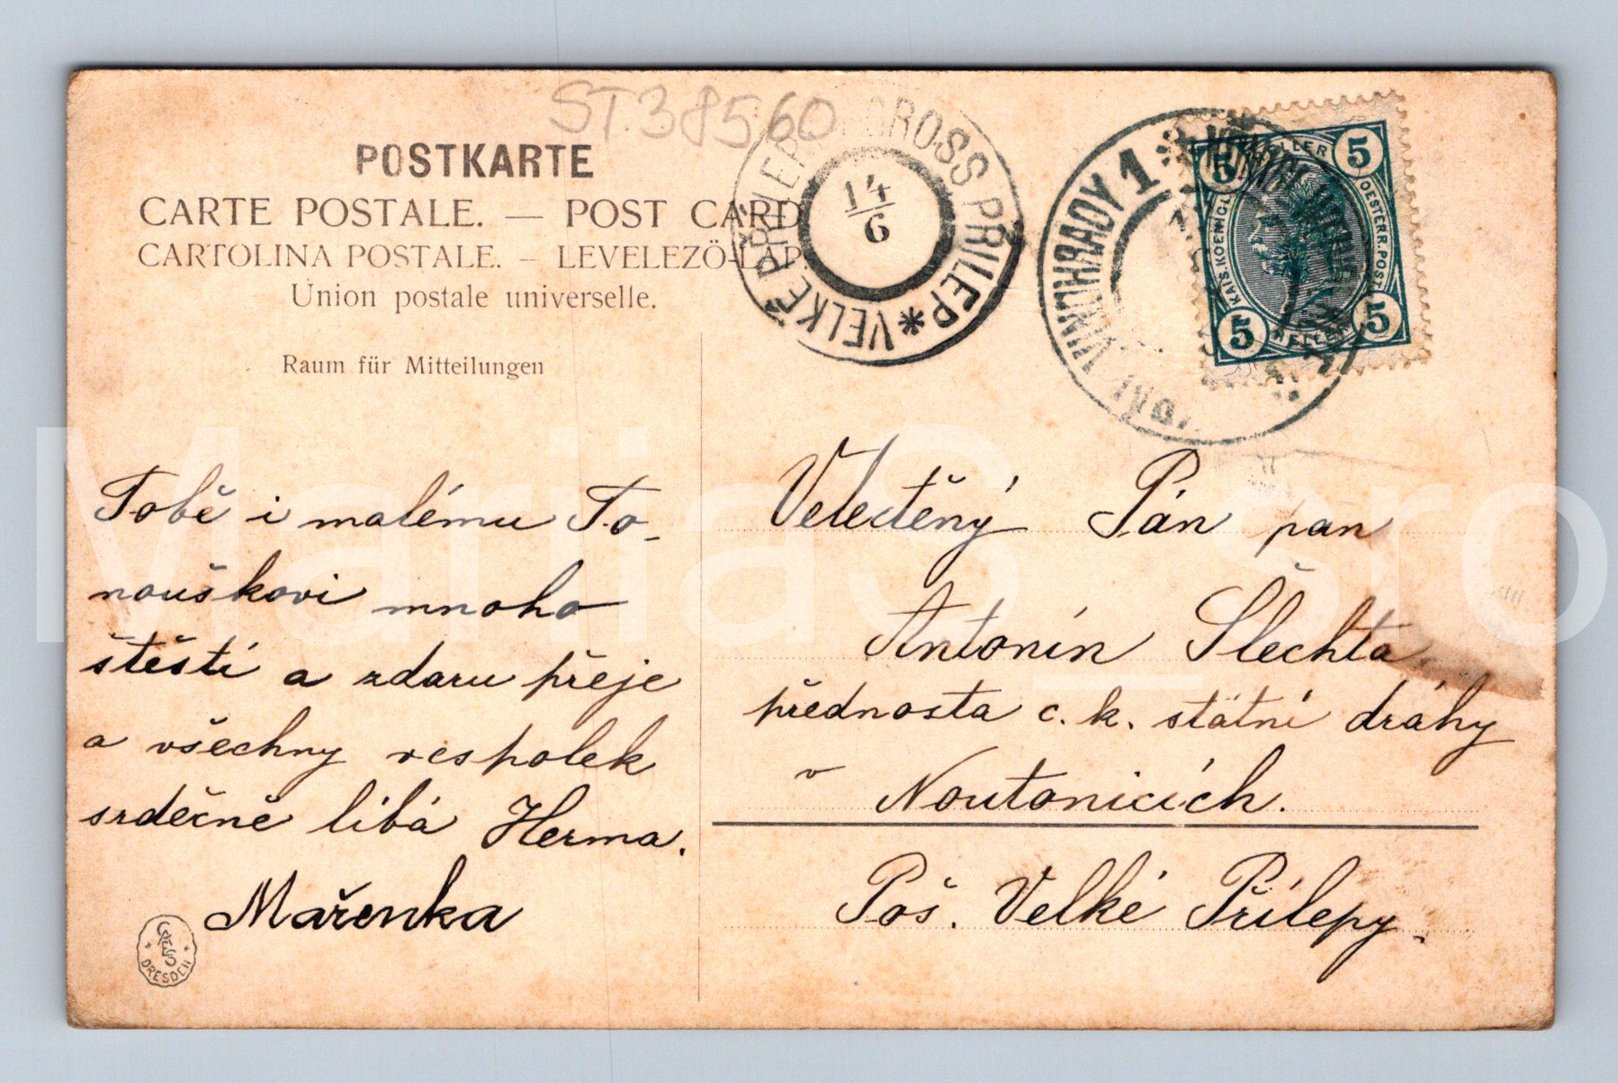 ST38560
POSTKARTE
CARTE POSTALE. — POST CARD
CARTOLINA POSTALE. – LEVELEZÖ-LAP.
Union postale universelle.
Raum für Mitteilungen
GROSS PŘILEP * VELKÉ PŘÍLEPY
14
6
VINOHRADY 1
KAIS. KOENIGL. OESTERR. POST
5
5
5
5
HELLER
HELLER
Tobě i malému To-
nouškovi mnoho
štěstí a zdaru přeje
a všechny vespolek
srdečně líbá Herma.
Mařenka
Velectěný Pán pan
Antonín Šlechta
přednosta c. k. státní dráhy
v Noutonicích.
Poš. Velké Přílepy.
DRESDEN
MarijaS_sro